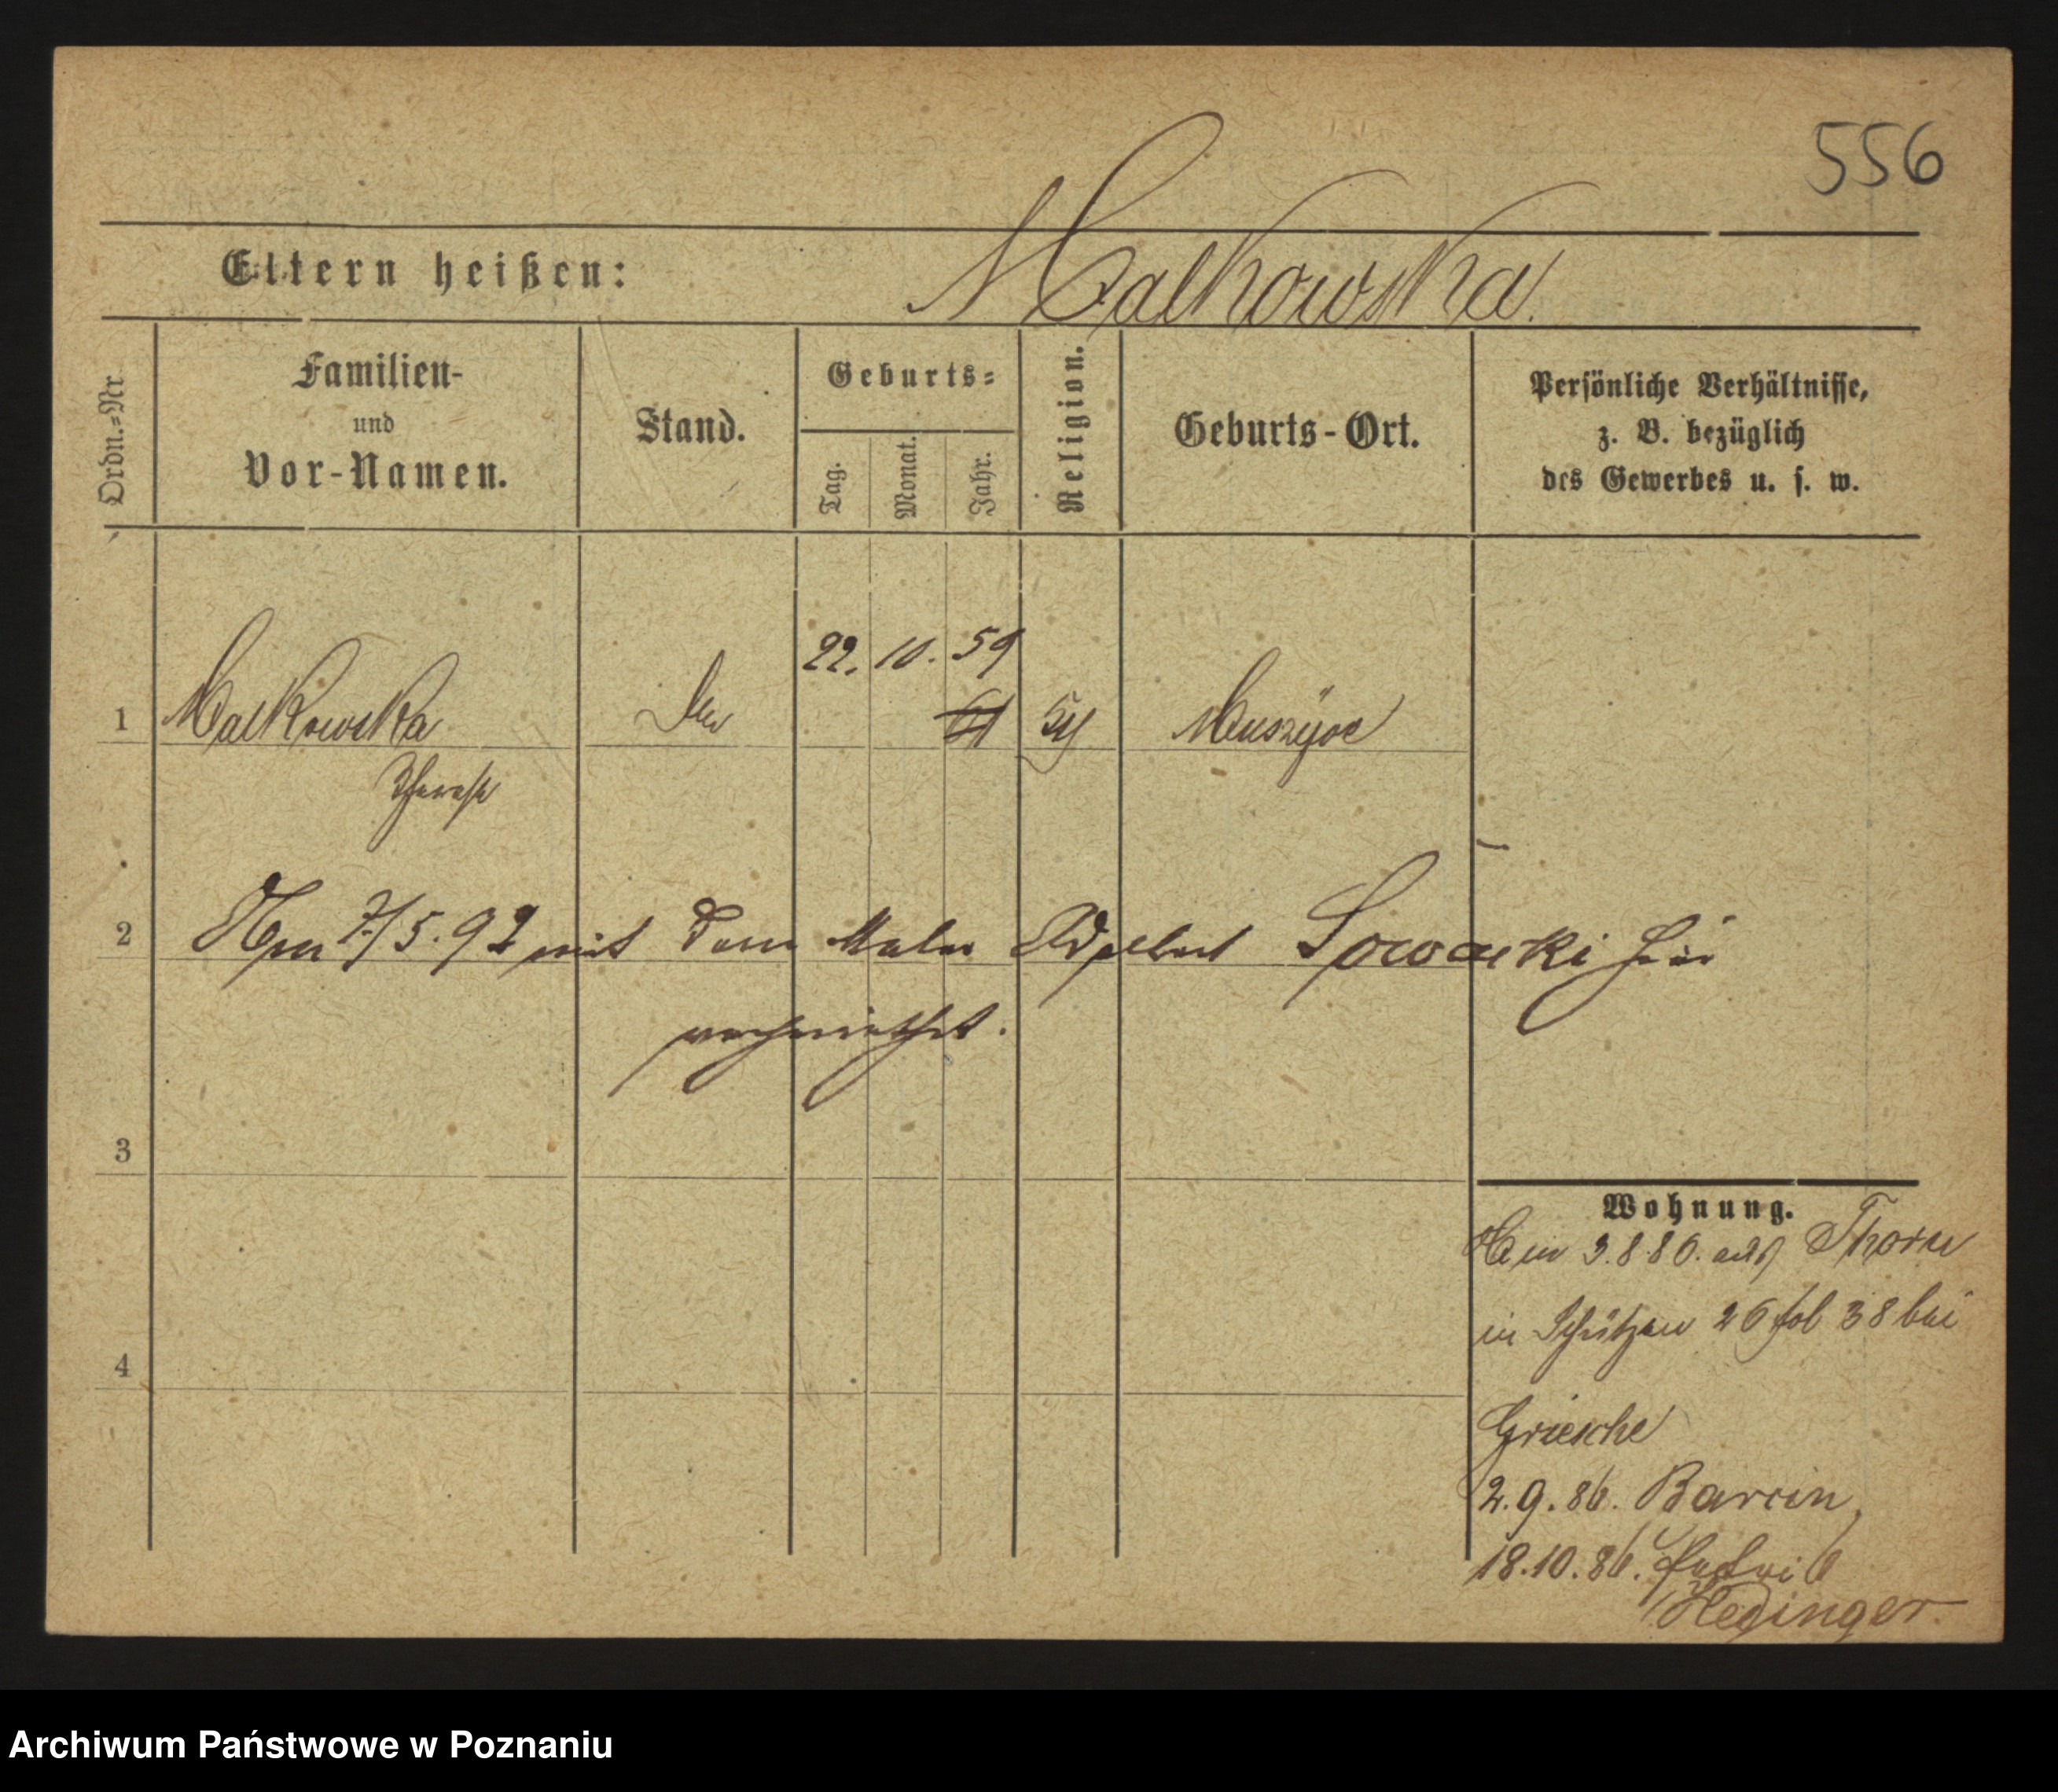 556
Eltern heißen: Malkowska.
Ordn.=Nr
Familien-
und
Vor-Namen.
Stand.
Geburts=
Tag.
Monat.
Jahr.
Religion.
Geburts-Ort.
Persönliche Verhältnisse,
z. B. bezüglich
des Gewerbes u. s. w.
22. 10. 59
1 Malkowska 61
Therese
2 Am 7/5.92 mit dem Maler Adalbert hier
verheirathet.
3
4
Wohnung.
Am 3.8.86. aus Thorn
in Schützen 26 bei
Griesche
2.9.86. Barcin,
18.10.86.
Hedinger.
Archiwum Państwowe w Poznaniu